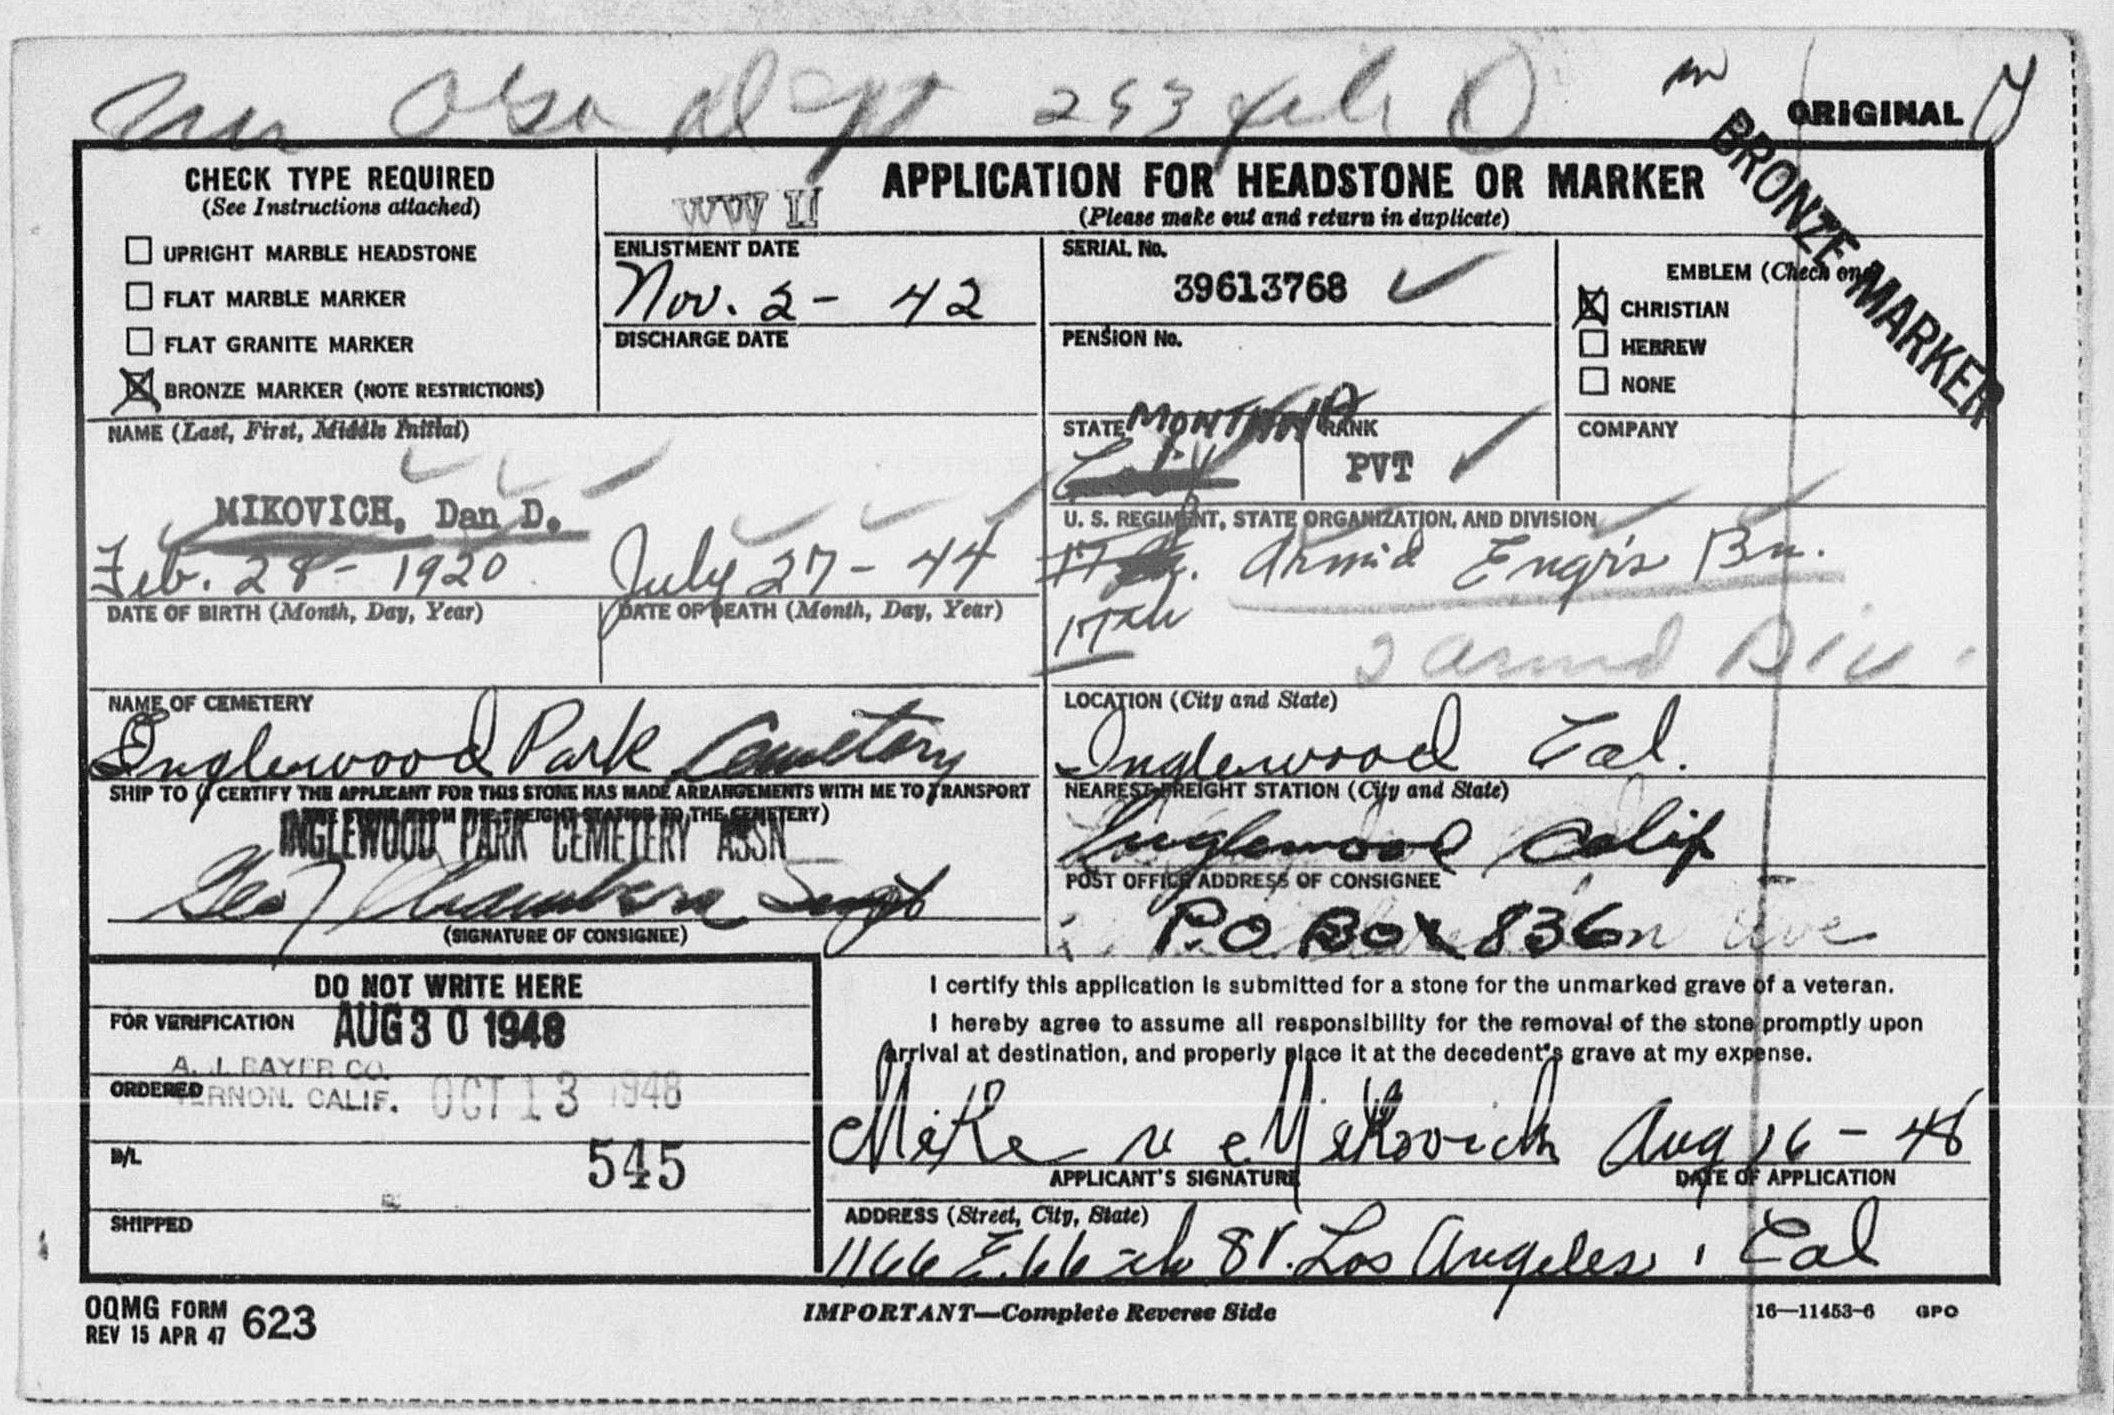 253 file
ORIGINAL
BRONZE MARKER
CHECK TYPE REQUIRED
(See Instructions attached)
☐ UPRIGHT MARBLE HEADSTONE
☐ FLAT MARBLE MARKER
☐ FLAT GRANITE MARKER
☒ BRONZE MARKER (NOTE RESTRICTIONS)
WW II
APPLICATION FOR HEADSTONE OR MARKER
(Please make out and return in duplicate)
ENLISTMENT DATE
Nov. 2 - 42
DISCHARGE DATE
SERIAL No.
39613768 ✓
PENSION No.
EMBLEM (Check one)
☒ CHRISTIAN
☐ HEBREW
☐ NONE
NAME (Last, First, Middle Initial)
MIKOVICH, Dan D.
STATE MONTANA
Cal.
RANK
PVT ✓
COMPANY
Feb. 28 - 1920
DATE OF BIRTH (Month, Day, Year)
July 27 - 44
DATE OF DEATH (Month, Day, Year)
U. S. REGIMENT, STATE ORGANIZATION, AND DIVISION
17 Armd Engrs Bn.
17th
2 Armd Div.
NAME OF CEMETERY
Inglewood Park Cemetery
LOCATION (City and State)
Inglewood Cal.
SHIP TO (I CERTIFY THE APPLICANT FOR THIS STONE HAS MADE ARRANGEMENTS WITH ME TO TRANSPORT
THE STONE FROM THE FREIGHT STATION TO THE CEMETERY)
INGLEWOOD PARK CEMETERY ASSN
Geo Chambers Supt
(SIGNATURE OF CONSIGNEE)
NEAREST FREIGHT STATION (City and State)
Inglewood Calif
POST OFFICE ADDRESS OF CONSIGNEE
P.O Box 836 Ave
DO NOT WRITE HERE
FOR VERIFICATION AUG 30 1948
A. J. BAYER CO.
ORDERED VERNON, CALIF. OCT 13 1948
B/L 545
SHIPPED
I certify this application is submitted for a stone for the unmarked grave of a veteran.
I hereby agree to assume all responsibility for the removal of the stone promptly upon
arrival at destination, and properly place it at the decedent's grave at my expense.
Mike v Mikovich Aug 16 - 48
APPLICANT'S SIGNATURE DATE OF APPLICATION
ADDRESS (Street, City, State)
1166 E. 66th St. Los Angeles, Cal
OQMG FORM 623
REV 15 APR 47
IMPORTANT—Complete Reverse Side
16—11453-6 GPO